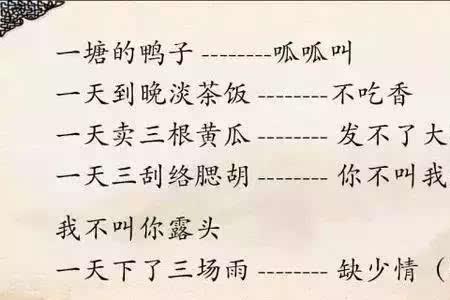 一塘的鸭子 --------呱呱叫
一天到晚淡茶饭 --------不吃香
一天卖三根黄瓜 -------- 发不了大
一天三刮络腮胡 -------- 你不叫我
我不叫你露头
一天下了三场雨 -------- 缺少情（